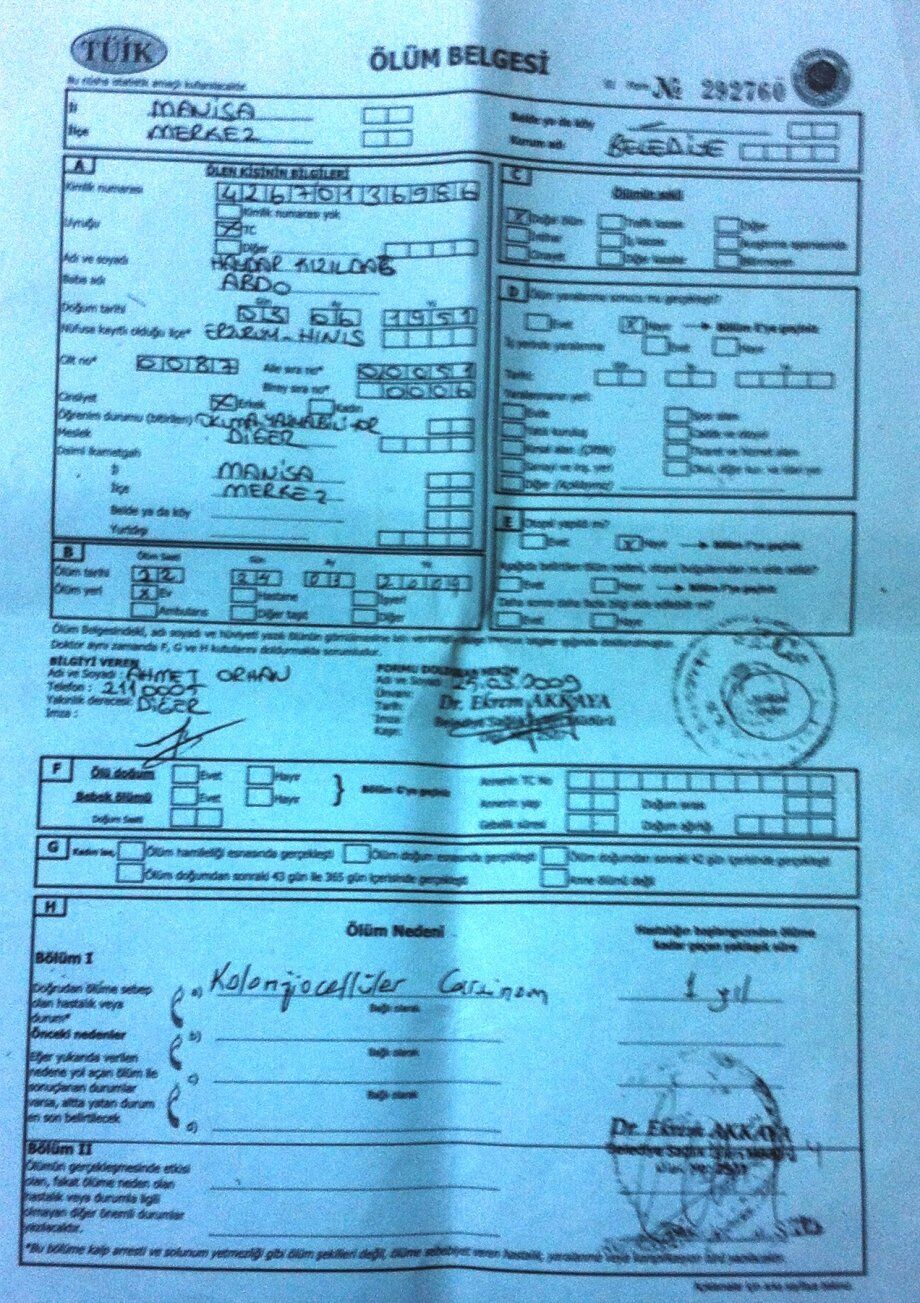 TÜİK
ÖLÜM BELGESİ
Bu nüsha istatistik amaçlı kullanılacaktır.
№ 292760
İl MANİSA
İlçe MERKEZ
Belde ya da köy
Kurum adı BELEDİYE
A
ÖLEN KİŞİNİN BİLGİLERİ
Kimlik numarası 42670136986
Kimlik numarası yok
Uyruğu X TC
Diğer
Adı ve soyadı HAYDAR KIZILDAĞ
Baba adı ABDO
Gün Ay Yıl
Doğum tarihi 03 06 1951
Nüfusa kayıtlı olduğu ilçe* ERZURUM-HINIS
Cilt no* 0087 Aile sıra no* 00051
Birey sıra no* 0006
Cinsiyet X Erkek Kadın
Öğrenim durumu (bitirilen) OKUMA YAZMA BİLİYOR
Meslek DİĞER
Daimi ikametgah
İl MANİSA
İlçe MERKEZ
Belde ya da köy
Yurtdışı
B
Ölüm Saati Gün Ay Yıl
Ölüm tarihi 22 24 03 2009
Ölüm yeri X Ev Hastane İşyeri
Ambulans Diğer taşıt Diğer
C
Ölümün şekli
X Doğal ölüm Trafik kazası Diğer
İntihar İş kazası
Cinayet Diğer kazalar Bilinmeyen
D
Ölüm yaralanma sonucu mu gerçekleşti?
Evet X Hayır Bölüm E'ye geçiniz
İş yerinde yaralanma Evet Hayır
Gün Ay Yıl
Tarihi
Yaralanmanın yeri
Evde Spor alanı
Toplu kuruluş Cadde ve otoyol
Tarımsal alan (Çiftlik) Ticaret ve hizmet alanı
Sanayi ve inş. yeri Okul, diğer kur. ve idari yer
Diğer (Açıklayınız)
E
Otopsi yapıldı mı?
Evet X Hayır Bölüm F'ye geçiniz
Aşağıda belirtilen ölüm nedeni, otopsi bulgularından mı elde edildi?
Evet Hayır Bölüm F'ye geçiniz
Daha sonra daha fazla bilgi elde edilebilir mi?
Evet Hayır
Ölüm Belgesindeki, adı soyadı ve hüviyeti yazılı ölünün gömülmesine izin verilmiştir
Doktor aynı zamanda F, G ve H kutularını doldurmakla sorumludur.
BİLGİYİ VEREN
Adı ve Soyadı : AHMET ORHAN
Telefon : 2110001
Yakınlık derecesi: DİĞER
İmza :
FORMU DOLDURAN HEKİM
Adı ve Soyadı
Ünvanı
Tarih: 24.03.2009
İmza:
Kaşe:
Dr. Ekrem AKKAYA
Belediye Sağlık İşleri Müdürü
F
Ölü doğum Evet Hayır
Bebek ölümü Evet Hayır
Doğum Saati
Bölüm G'ye geçiniz
Annenin TC No
Annenin yaşı Doğum sırası
Gebelik süresi Doğum ağırlığı
G
Kadın ise, Ölüm hamileliği esnasında gerçekleşti Ölüm doğum esnasında gerçekleşti Ölüm doğumdan sonraki 42 gün içerisinde gerçekleşti
Ölüm doğumdan sonraki 43 gün ile 365 gün içerisinde gerçekleşti Anne ölümü değil
H
Ölüm Nedeni
Hastalığın başlangıcından ölüme
kadar geçen yaklaşık süre
Bölüm I
Doğrudan ölüme sebep
olan hastalık veya
durum*
a) Kolanjiocellüler Carsinom 1 yıl
Bağlı olarak
Önceki nedenler
b)
Bağlı olarak
Eğer yukarıda verilen
nedene yol açan ölüm ile
sonuçlanan durumlar
varsa, altta yatan durum
en son belirtilecek
c)
Bağlı olarak
d)
Dr. Ekrem AKKAYA
Belediye Sağlık İşleri Müdürü
Bölüm II
Ölümün gerçekleşmesinde etkisi
olan, fakat ölüme neden olan
hastalık veya durumla ilgili
olmayan diğer önemli durumlar
yazılacaktır.
*Bu bölüme kalp arresti ve solunum yetmezliği gibi ölüm şekilleri değil, ölüme sebebiyet veren hastalık, yaralanma veya komplikasyon türü yazılacaktır.
Açıklamalar için arka sayfaya bakınız.